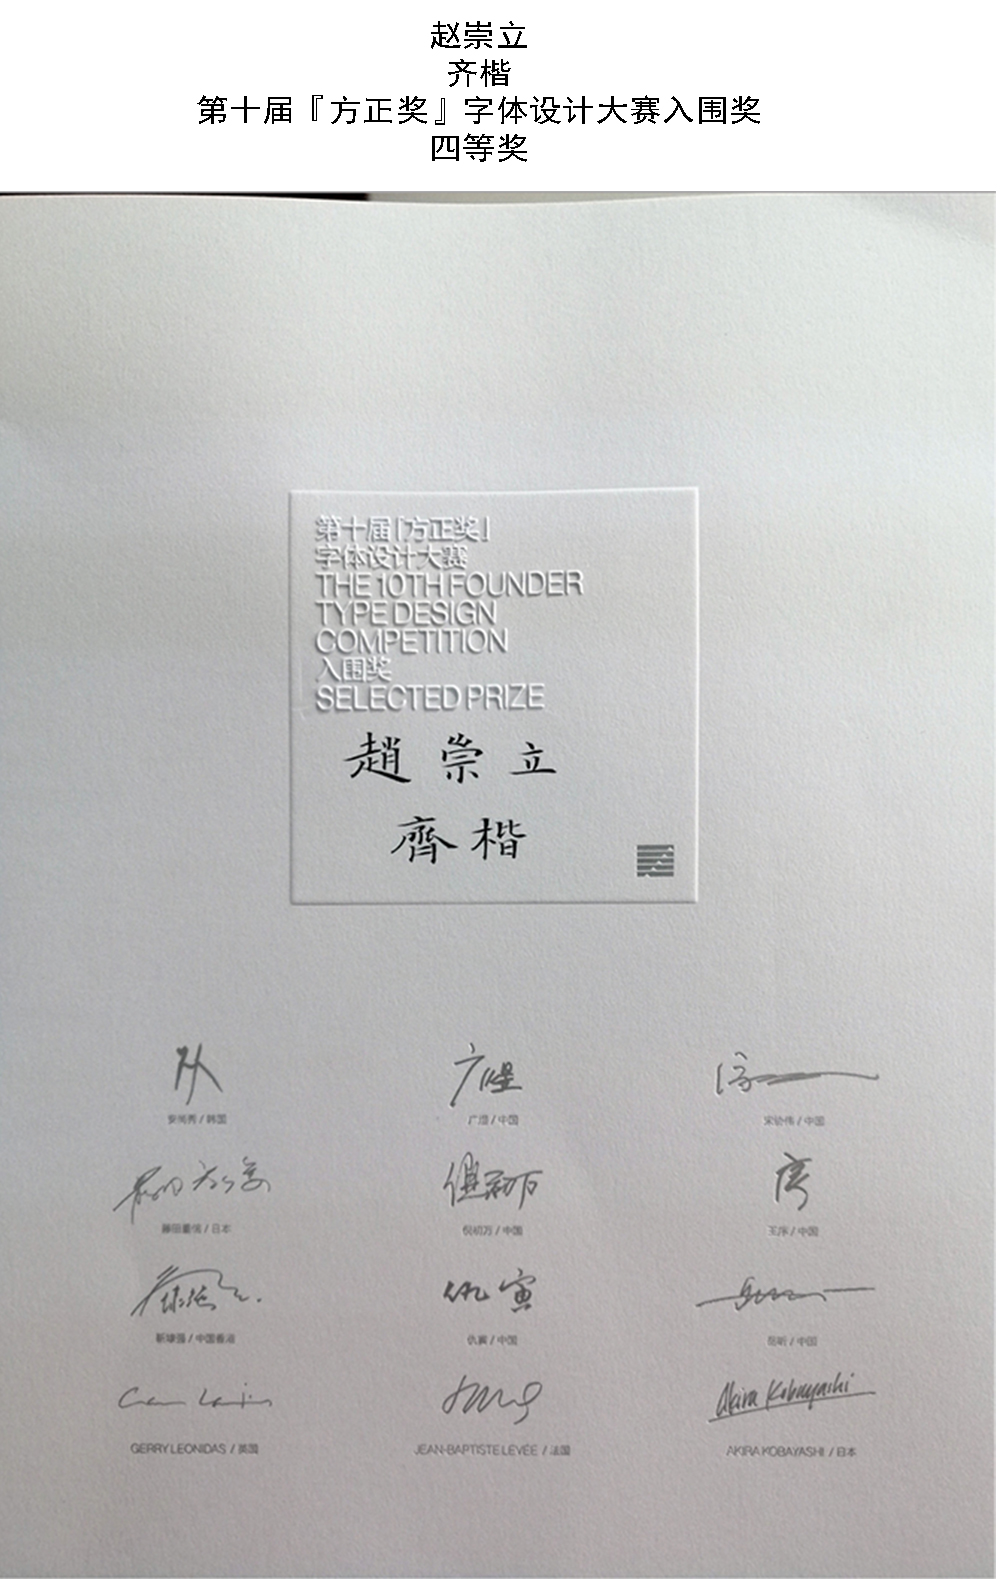 赵崇立
齐楷
第十届『方正奖』字体设计大赛入围奖
四等奖
第十届「方正奖」
字体设计大赛
THE 10TH FOUNDER
TYPE DESIGN
COMPETITION
入围奖
SELECTED PRIZE
趙崇立
齊楷
安尚秀 / 韩国
广煜 / 中国
/ 中国
藤田重信 / 日本
倪初万 / 中国
王序 / 中国
靳埭强 / 中国香港
仇寅 / 中国
岳昕 / 中国
GERRY LEONIDAS / 英国
JEAN-BAPTISTE LEVÉE / 法国
Akira Kobayashi
AKIRA KOBAYASHI / 日本